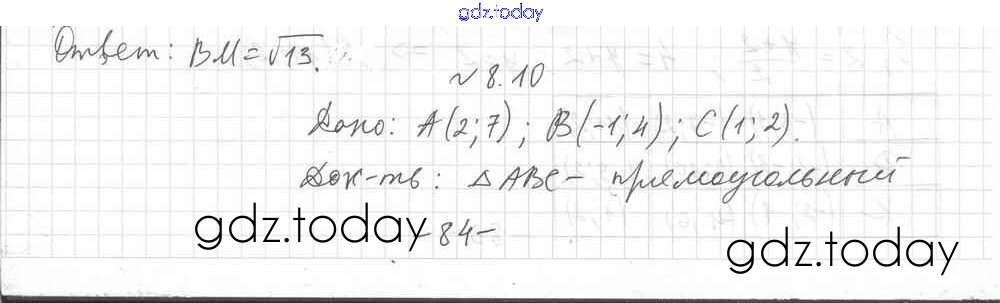 gdz.today
Ответ: BM = √13.
№ 8.10
Дано: A(2;7); B(-1;4); C(1;2).
Док-ть: △ABC - прямоугольный
gdz.today
- 84 -
gdz.today